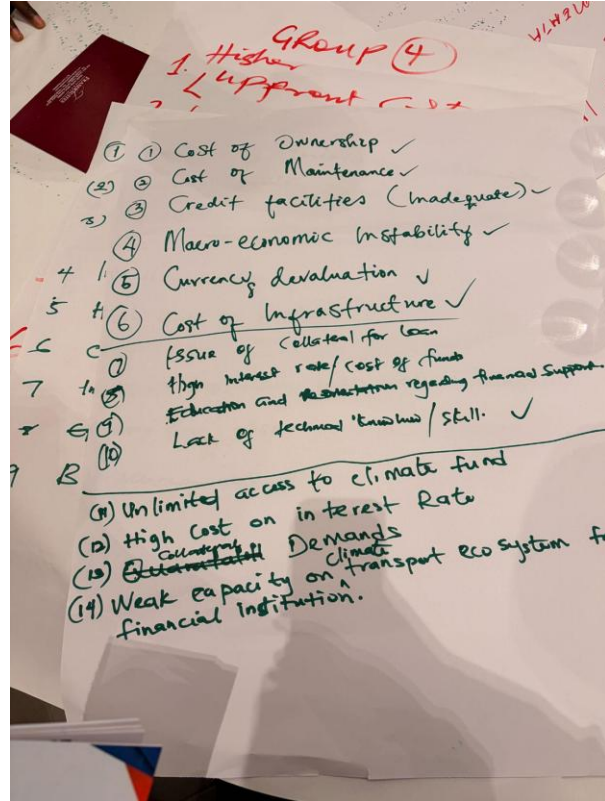 GROUP 4
1. Higher
upfront cost
① ① Cost of Ownership ✓
(2) ② Cost of Maintenance ✓
3) ③ Credit facilities (Inadequate) ✓
④ Macro-economic Instability ✓
4 ⑤ Currency devaluation ✓
5 H ⑥ Cost of Infrastructure ✓
6 C ⑦ Issue of Collateral for loan
7 ⑧ High interest rate/cost of funds
⑨ Education and regarding financial Support.
9 B ⑩ Lack of technical 'knowhow'/skill. ✓
(11) Unlimited access to climate fund
(12) High Cost on interest Rate
(13) Collateral Demands
(14) Weak capacity on climate transport eco system
financial institution.